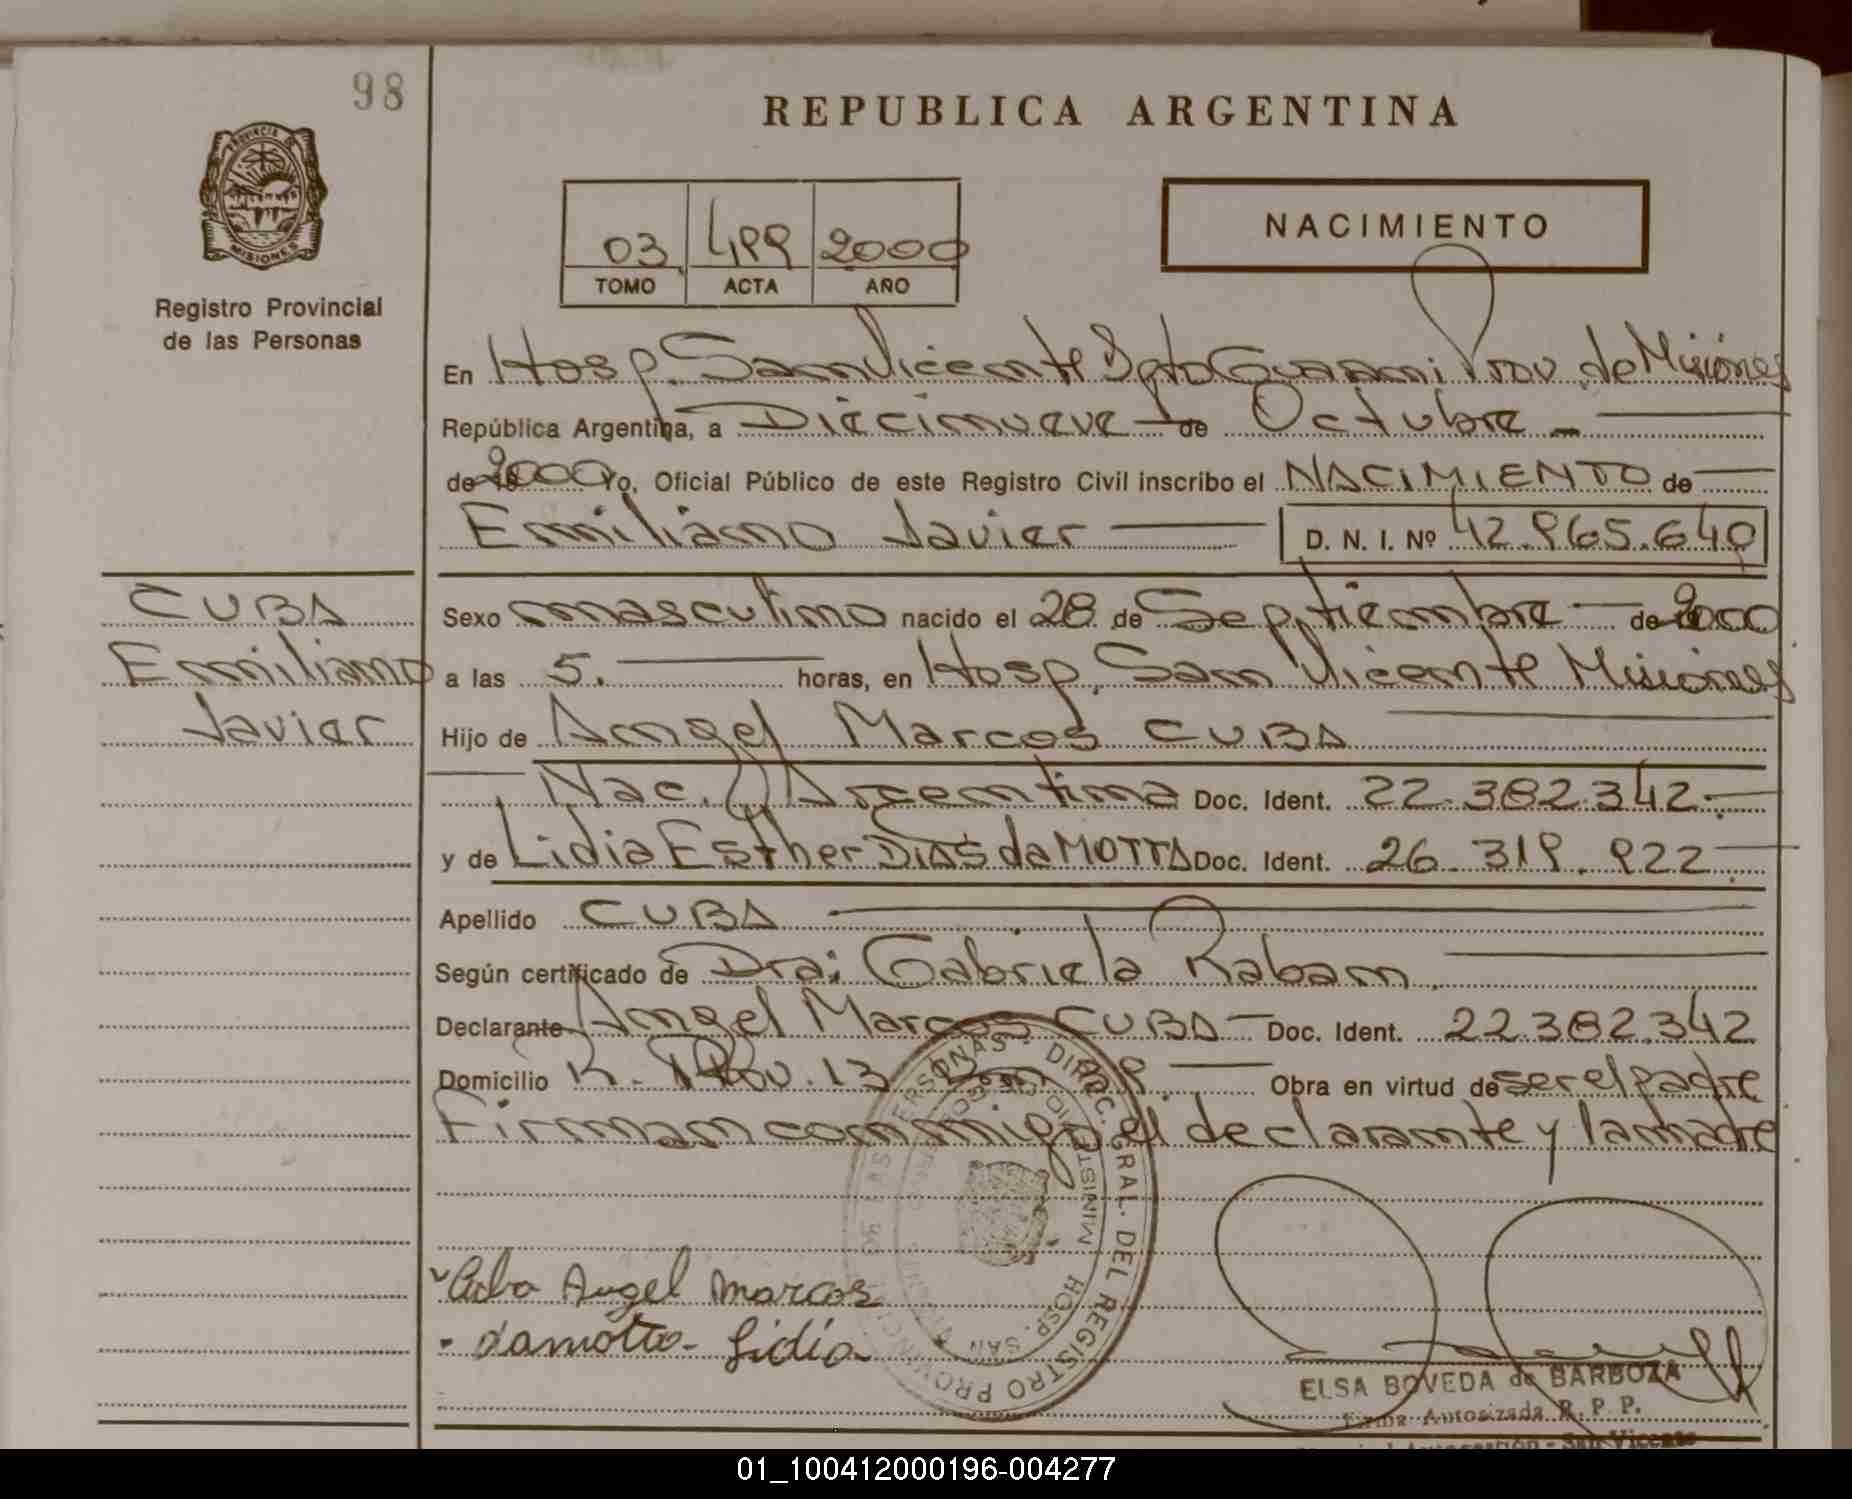 98
REPUBLICA ARGENTINA
PROVINCIA DE
MISIONES
Registro Provincial
de las Personas
03 499 2000
TOMO ACTA AÑO
NACIMIENTO
En Hosp. San Vicente Dpto Guarani Prov. de Misiones
República Argentina, a Diecinueve de Octubre
de 2000 Yo, Oficial Público de este Registro Civil inscribo el NACIMIENTO de
Emiliano Javier D. N. I. Nº 42.965.640
CUBA
Emiliano
Javier
Sexo masculino nacido el 28 de Septiembre de 2000
a las 5. horas, en Hosp. San Vicente Misiones
Hijo de Angel Marcos CUBA
Nac. Argentina Doc. Ident. 22.382.342
y de Lidia Esther DIAS da MOTTA Doc. Ident. 26.319.922
Apellido CUBA
Según certificado de Dra: Gabriela Raban
Declarante Angel Marcos CUBA Doc. Ident. 22.382.342
Domicilio R. 13 Obra en virtud de ser el padre
Firman conmigo el declarante y la madre
Cuba Angel Marcos
damotta - Lidia
DIREC. GRAL. DEL REGISTRO PROVINCIAL DE LAS PERSONAS
HOSP. SAN VICENTE
ELSA BOVEDA de BARBOZA
Firma Autorizada R. P. P.
San Vicente
01_100412000196-004277